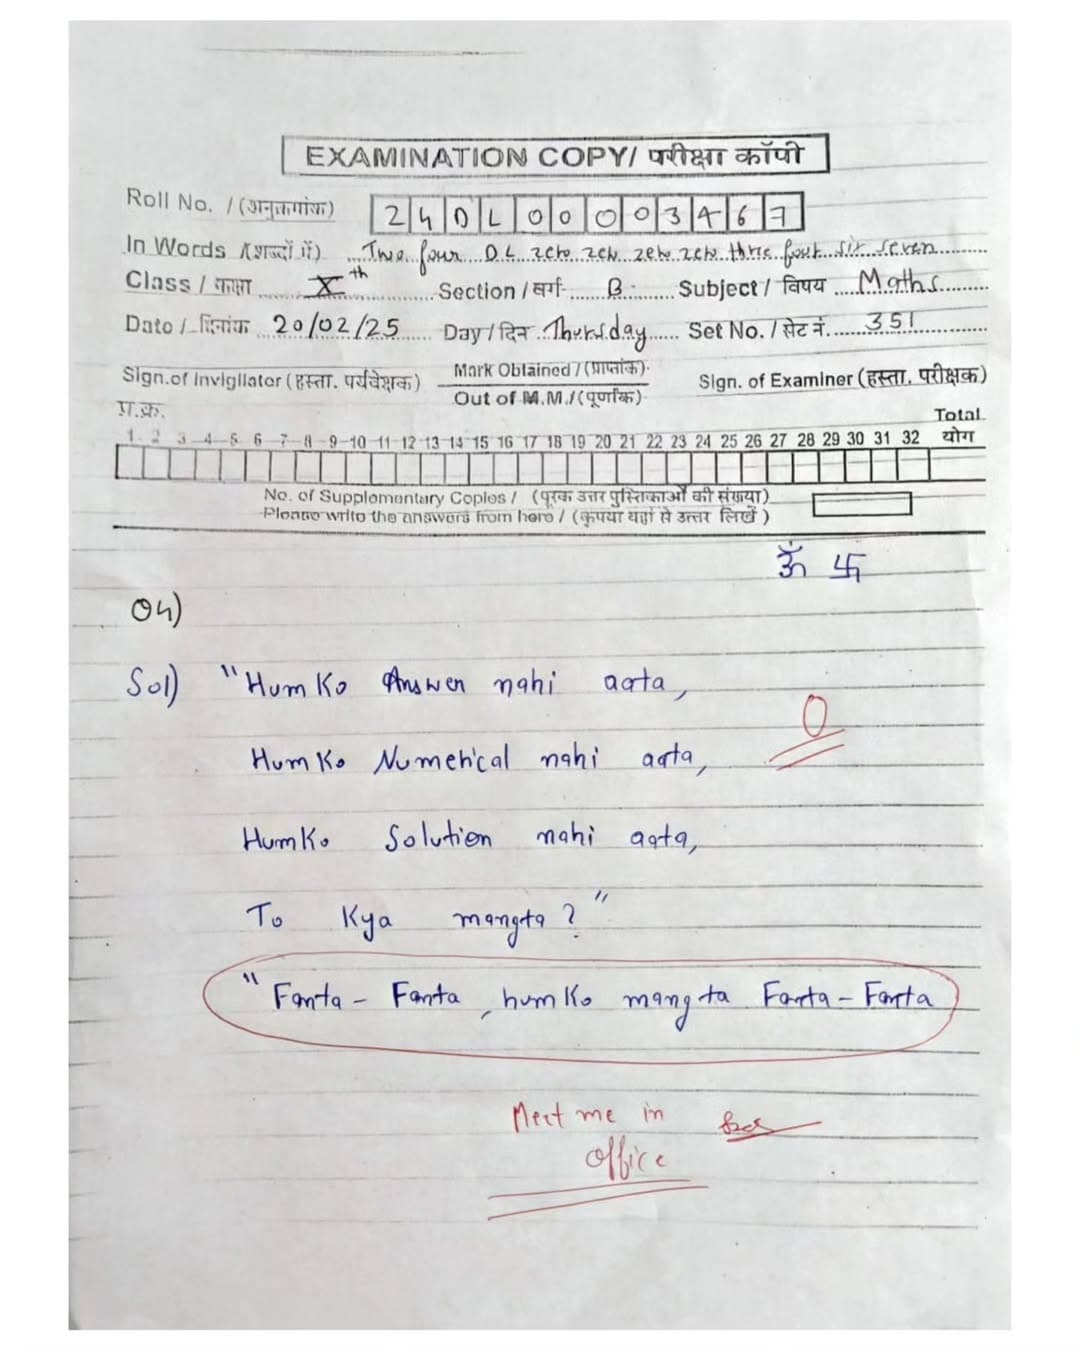 EXAMINATION COPY/ परीक्षा कॉपी
Roll No. / (अनुक्रमांक) 24DL00003467
In Words /(शब्दों में) Two four DL zero zero zero zero three four six seven
Class / कक्षा Xth Section / वर्ग B Subject / विषय Maths
Date / दिनांक 20/02/25 Day / दिन Thursday Set No. / सेट नं. 351
Sign.of Invigilator (हस्ता. पर्यवेक्षक) Mark Obtained / (प्राप्तांक) Sign. of Examiner (हस्ता. परीक्षक)
Out of M.M./(पूर्णांक)
प्र.क्र. Total
1 2 3 4 5 6 7 8 9 10 11 12 13 14 15 16 17 18 19 20 21 22 23 24 25 26 27 28 29 30 31 32 योग
No. of Supplementary Copies / (पूरक उत्तर पुस्तिकाओं की संख्या)
Please write the answers from here / (कृपया यहां से उत्तर लिखें)
ॐ 卐
04)
Sol) "Humko Answer nahi aata,
0
Humko Numerical nahi aata,
Humko Solution nahi aata,
To Kya mangta?"
"Fanta - Fanta, humko mangta Fanta - Fanta
Meet me in
office